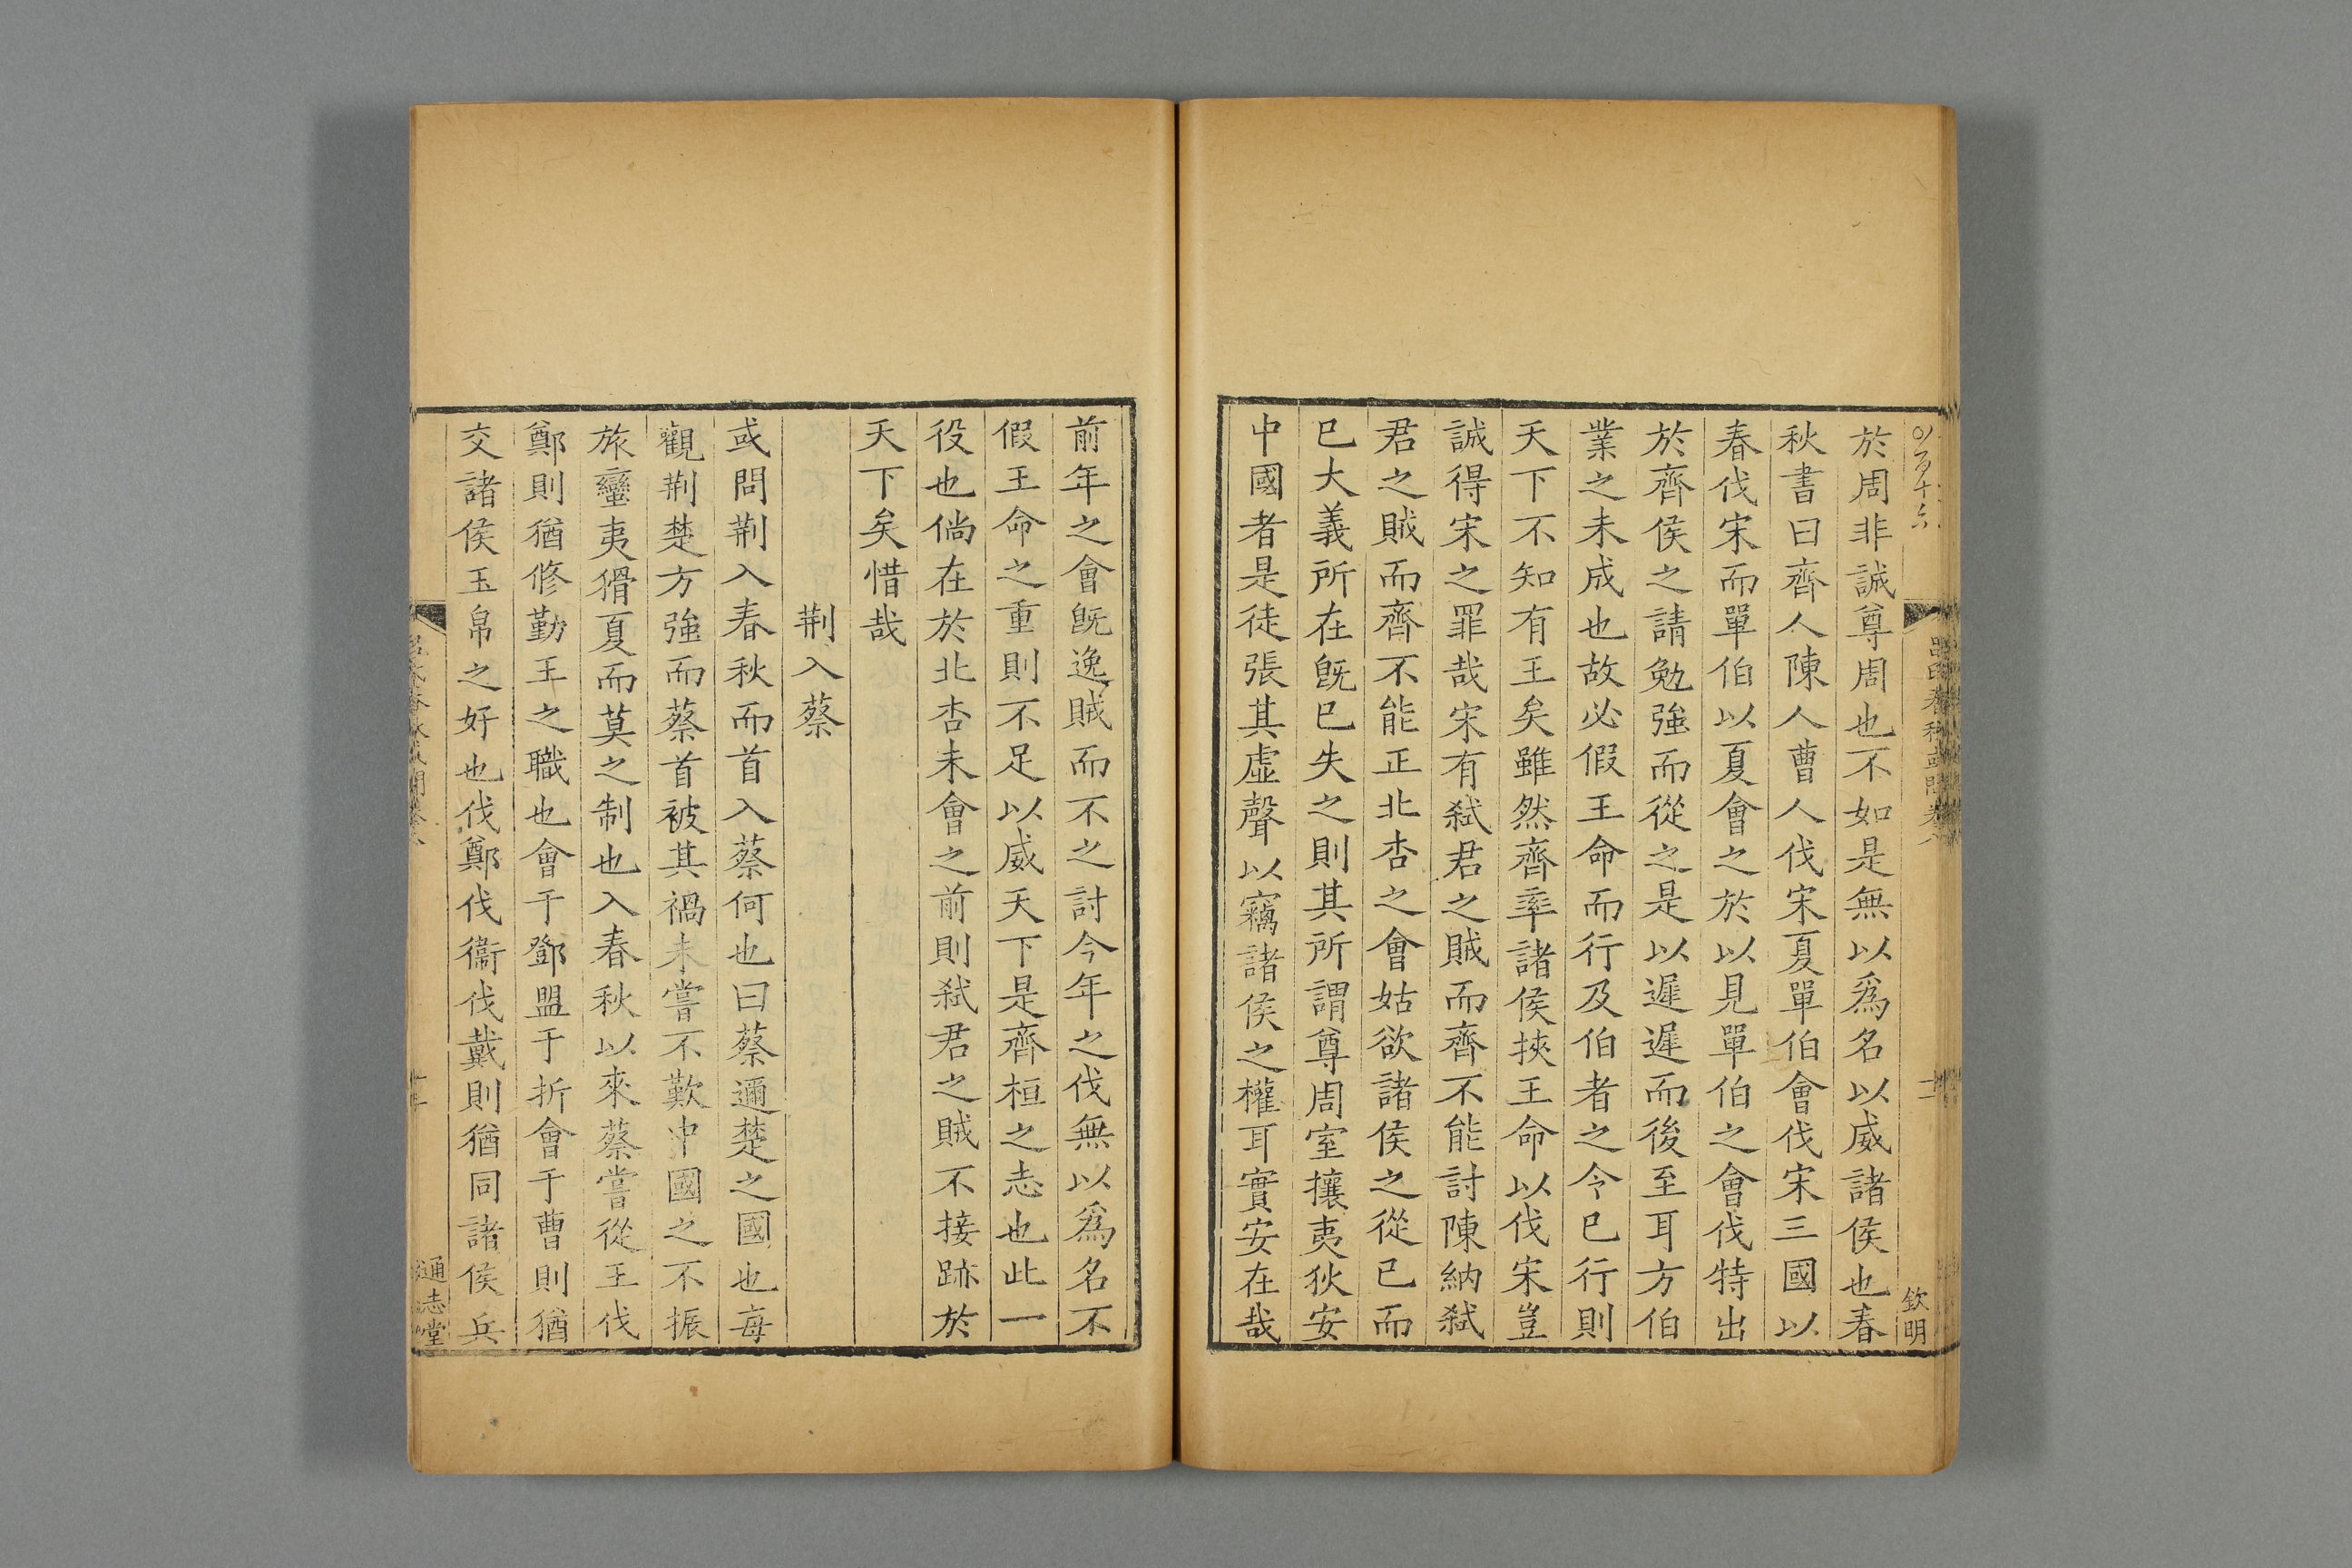 於周非誠尊周也不如是無以爲名以威諸侯也春
秋書曰齊人陳人曹人伐宋夏單伯會伐宋三國以
春伐宋而單伯以夏會之於以見單伯之會伐特出
於齊侯之請勉強而從之是以遲遲而後至耳方伯
業之未成也故必假王命而行及伯者之令已行則
天下不知有王矣雖然齊率諸侯挾王命以伐宋豈
誠得宋之罪哉宋有弑君之賊而齊不能討陳納弑
君之賊而齊不能正北杏之會姑欲諸侯之從已而
已大義所在旣已失之則其所謂尊周室攘夷狄安
中國者是徒張其虛聲以竊諸侯之權耳實安在哉
欽明
前年之會旣逸賊而不之討今年之伐無以爲名不
假王命之重則不足以威天下是齊桓之志也此一
役也倘在於北杏未會之前則弑君之賊不接跡於
天下矣惜哉
荆入蔡
或問荆入春秋而首入蔡何也曰蔡邇楚之國也每
觀荆楚方強而蔡首被其禍未嘗不歎中國之不振
旅蠻夷猾夏而莫之制也入春秋以來蔡嘗從王伐
鄭則猶修勤王之職也會于鄧盟于折會于曹則猶
交諸侯玉帛之好也伐鄭伐衞伐戴則猶同諸侯兵
通志堂